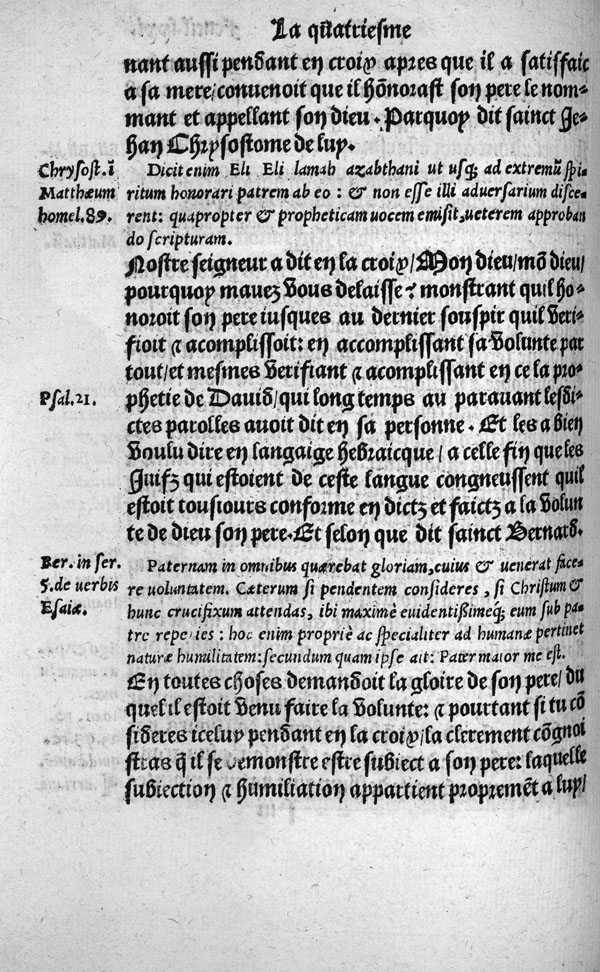 La quatriesme
nant aussi pendant en croix apres que il a satisfaic
a sa mere/convenoit que il hõnorast son pere le nom-
mant et appellant son dieu. Parquoy dit sainct Je-
han Chrysostome de luy.
Chrysost. ĩ
Matthæum
homel. 89.
Dicit enim Eli Eli lamah azabthani ut usq; ad extremũ spi-
ritum honorari patrem ab eo : & non esse illi adversarium disce-
rent: quapropter & propheticam vocem emisit, veterem approban
do scripturam.
Nostre seigneur a dit en la croix/Mon dieu/mõ dieu/
pourquoy mavez vous delaisse ⁊ monstrant quil ho-
noroit son pere iusques au dernier souspir quil veri-
fioit ⁊ acomplissoit: en accomplissant sa volunte par
tout/et mesmes verifiant ⁊ acomplissant en ce la pro-
Psal. 21.
phetie de David/qui long temps au paravant lesdi-
ctes parolles avoit dit en sa personne. Et les a bien
voulu dire en langaige hebraicque/a celle fin que les
Juifz qui estoient de ceste langue congneussent quil
estoit tousiours conforme en dictz et faictz a la volun
te de dieu son pere. Et selon que dit sainct Bernard.
Ber. in ser.
5. de verbis
Esaiæ.
Paternam in omnibus quærebat gloriam, cuius & venerat face-
re voluntatem. Cæterum si pendentem consideres, si Christum &
hunc crucifixum attendas, ibi maximè evidentißimeq; eum sub pa-
tre reperies : hoc enim propriè ac specialiter ad humanæ pertinet
naturæ humilitatem: secundum quam ipse ait: Pater maior me est.
En toutes choses demandoit la gloire de son pere/du
quel il estoit venu faire la volunte: ⁊ pourtant si tu cõ
sideres iceluy pendant en la croix/la clerement cõgnoi
stras q̃ il se demonstre estre subiect a son pere: laquelle
subiection ⁊ humiliation appartient propremẽt a luy/